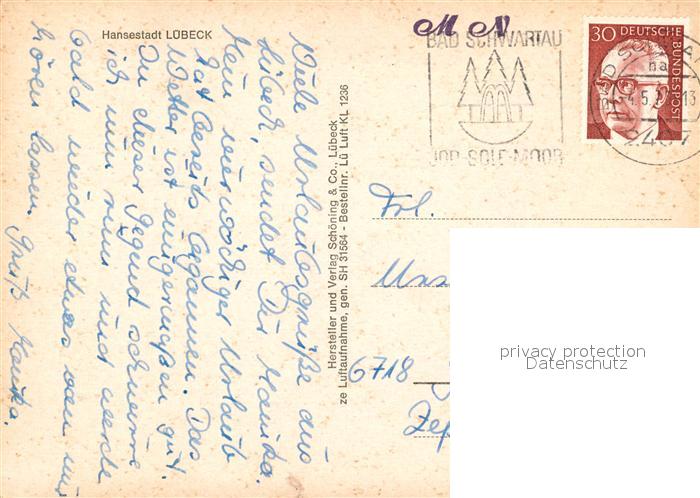 Hansestadt LÜBECK
Viele Urlaubsgrüße aus
Lübeck, sendet Dir Monika.
Mein vierwöchiger Urlaub
hat bereits begonnen. Das
Wetter ist einigermaßen gut.
In dieser Gegend schwirre
ich nun rum und werde
bald wieder etwas von mir
hören lassen. Gruß Monika.
Hersteller und Verlag Schöning & Co., Lübeck
ze Luftaufnahme, gen. SH 31564 - Bestellnr. Lü Luft KL 1236
M N
BAD SCHWARTAU
JOD-SOLE-MOOR
30 DEUTSCHE
BUNDESPOST
Frl.
6718
privacy protection
Datenschutz